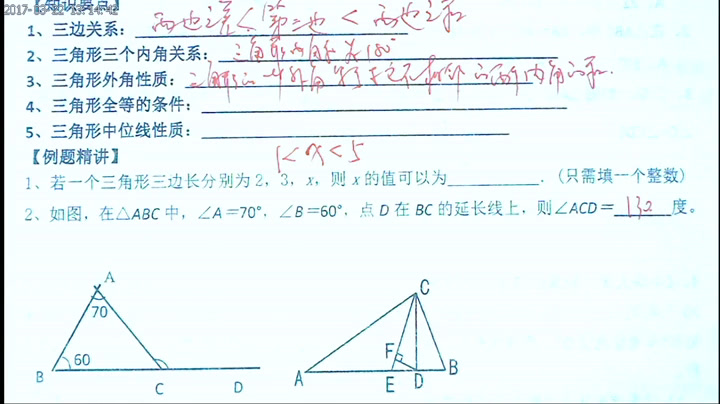 【知识要点】
2017-03-22 13:14:42
1、三边关系：两边之差<第三边<两边之和
2、三角形三个内角关系：三角形内角和为180°
3、三角形外角性质：三角形的一个外角等于与它不相邻的两个内角的和.
4、三角形全等的条件：
5、三角形中位线性质：
【例题精讲】
1<x<5
1、若一个三角形三边长分别为2，3，x，则x的值可以为 .（只需填一个整数）
2、如图，在△ABC中，∠A＝70°，∠B＝60°，点D在BC的延长线上，则∠ACD＝130度。
A
70
60
B C D
C
F
A E D B